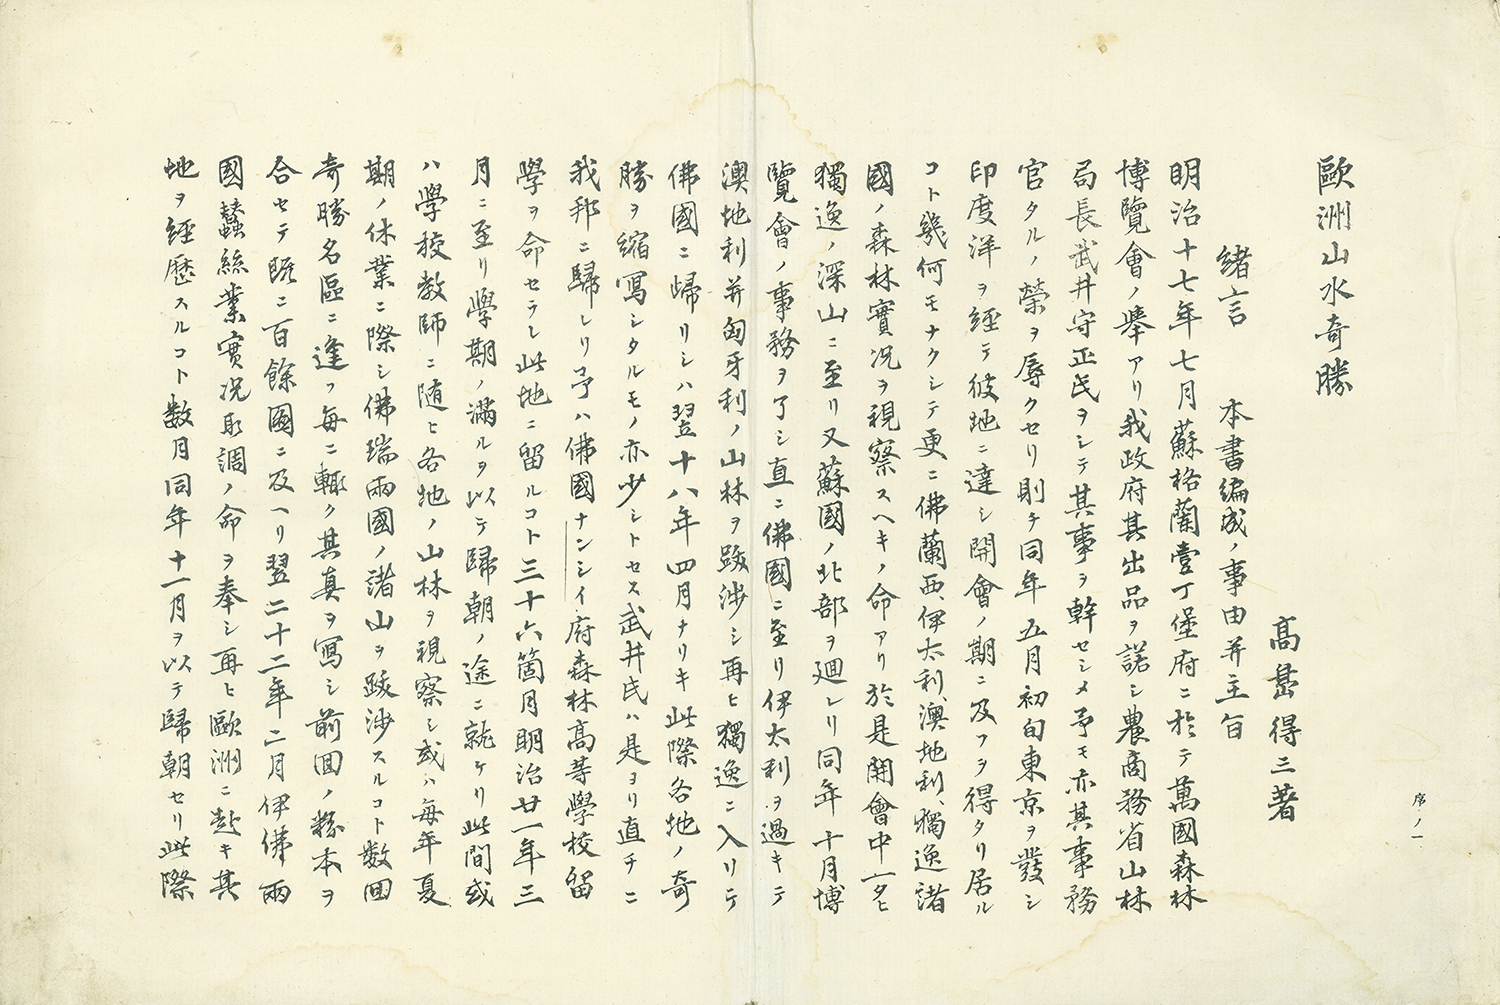 歐洲山水奇勝
高島得三著
緒言　本書編成ノ事由并主旨
明治十七年七月蘇格蘭壹丁堡府ニ於テ萬國森林
博覽會ノ擧アリ我政府其出品ヲ諾シ農商務省山林
局長武井守正氏ヲシテ其事ヲ幹セシメ予モ亦其事務
官タルノ榮ヲ辱クセリ則チ同年五月初旬東京ヲ發シ
印度洋ヲ經テ彼地ニ達シ開會ノ期ニ及フヲ得タリ居ル
コト幾何モナクシテ更ニ佛蘭西、伊太利、澳地利、獨逸諸
國ノ森林實況ヲ視察スヘキノ命アリ於是開會中一タヒ
獨逸ノ深山ニ至リ又蘇國ノ北部ヲ廻レリ同年十月博
覽會ノ事務ヲ了シ直ニ佛國ニ至リ伊太利ヲ過キテ
澳地利并匈牙利ノ山林ヲ跋渉シ再ヒ獨逸ニ入リテ
佛國ニ歸リシハ翌十八年四月ナリキ此際各地ノ奇
勝ヲ縮寫シタルモノ亦少シトセス武井氏ハ是ヨリ直チニ
我邦ニ歸レリ予ハ佛國ナンシイ府森林高等學校留
學ヲ命セラレ此地ニ留ルコト三十六箇月明治廿一年三
月ニ至リ學期ノ滿ルヲ以テ歸朝ノ途ニ就ケリ此間或
ハ學校教師ニ随ヒ各地ノ山林ヲ視察シ或ハ毎年夏
期ノ休業ニ際シ佛瑞兩國ノ諸山ヲ跋渉スルコト数回
奇勝名區ニ逢フ毎ニ輙ク其真ヲ寫シ前回ノ粉本ヲ
合セテ既ニ百餘圖ニ及ヘリ翌二十二年二月伊佛兩
國蠶絲業實況取調ノ命ヲ奉シ再ヒ歐洲ニ赴キ其
地ヲ經歴スルコト数月同年十一月ヲ以テ歸朝セリ此際
序ノ一